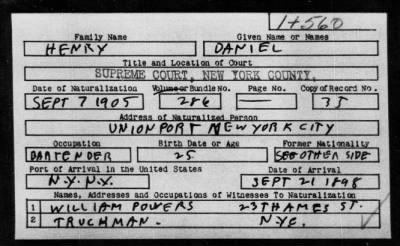 1+560
Family Name Given Name or Names
HENRY DANIEL
Title and Location of Court
SUPREME COURT, NEW YORK COUNTY,
Date of Naturalization Volume or Bundle No. Page No. Copy of Record No.
SEPT 7 1905 286 — 35
Address of Naturalized Person
UNIONPORT NEW YORK CITY
Occupation Birth Date or Age Former Nationality
BARTENDER 25 SEE OTHER SIDE
Port of Arrival in the United States Date of Arrival
N.Y. N.Y. SEPT 21 1898
Names, Addresses and Occupations of Witnesses To Naturalization
1 WILLIAM POWERS 23 THAMES ST.
2 TRUCHMAN. N.Y.C.